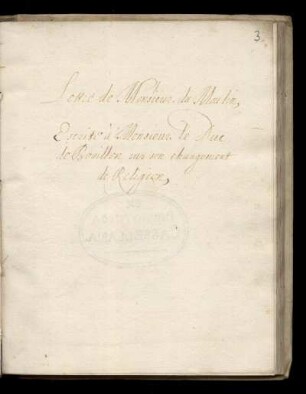 3.
Lettre de Monsieur du Moulin,
Escrite à Monsieur le Duc
de Bouillon sur son changement
de Religion,